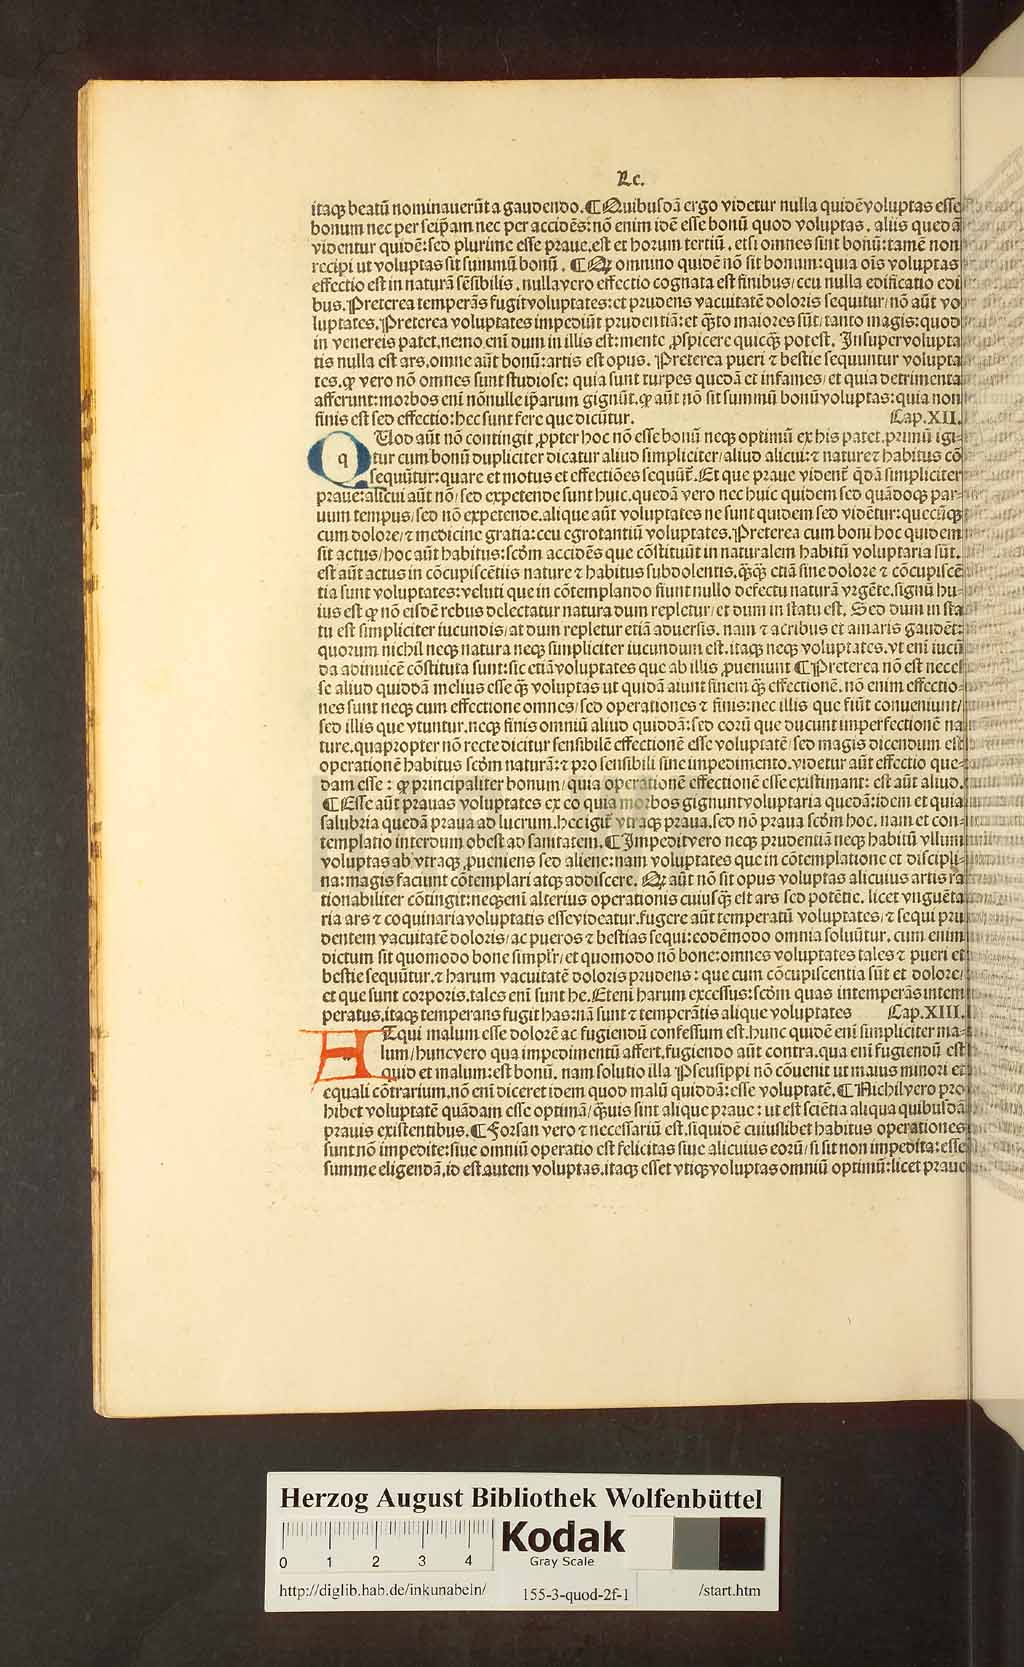 Lc.
itaqꝫ beatū nominauerūt a gaudendo. ¶ Quibusdā ergo videtur nulla quidē voluptas esse
bonum nec per seip̄am nec per accidēs: nō enim idē esse bonū quod voluptas. aliis quedā
videntur quidē: sed plurime esse praue. est et horum tertiū. etsi omnes sint bonū: tamē non
recipi ut voluptas sit summū bonū. ¶ Qꝫ omnino quidē nō sit bonum: quia oīs voluptas
effectio est in naturā sēsibilis. nulla vero effectio cognata est finibus/ ceu nulla edificatio edi
bus. Preterea temperās fugit voluptates: et prudens vacuitatē doloris sequitur/ nō aūt vo
luptates. Preterea voluptates impediūt prudentiā: et q̄to maiores sūt/ tanto magis: quod
in venereis patet. nemo. enī dum in illis est: mente ꝑspicere quicqꝫ potest. Insuper volupta
tis nulla est ars. omne aūt bonū: artis est opus. Preterea pueri ⁊ bestie sequuntur volupta
tes. ꝙ vero nō omnes sunt studiose: quia sunt turpes quedā et infames/ et quia detrimenta
afferunt: morbos enī nōnulle ip̄arum gignūt. ꝙ aūt nō sit summū bonū voluptas: quia non
finis est sed effectio: hec sunt fere que dicūtur. Cap. XII.
q Uod aūt nō contingit ꝓpter hoc nō esse bonū neqꝫ optimū ex his patet. primū igi-
tur cum bonū dupliciter dicatur aliud simpliciter/ aliud alicui: ⁊ nature ⁊ habitus cō
sequūtur: quare et motus et effectiōes sequūt᷑. Et que praue vident᷑ q̄dā simpliciter
praue: alicui aūt nō/ sed expetende sunt huic. quedā vero nec huic quidem sed quādoqꝫ par-
uum tempus/ sed nō expetende. alique aūt voluptates ne sunt quidem sed vidētur: quecūqꝫ
cum dolore/ ⁊ medicine gratia: ceu egrotantiū voluptates. Preterea cum boni hoc quidem
sit actus/ hoc aūt habitus: scd̄m accidēs que cōstituūt in naturalem habitū voluptaria sūt.
est aūt actus in cōcupiscētiis nature ⁊ habitus subdolentis. q̄q̄ etiā sine dolore ⁊ cōcupiscē
tia sunt voluptates: veluti que in cōtemplando fiunt nullo defectu naturā vrgēte. signū hu-
ius est ꝙ nō eisdē rebus delectatur natura dum repletur/ et dum in statu est. Sed dum in sta
tu est simpliciter iucundis/ at dum repletur etiā aduersis. nam ⁊ acribus et amaris gaudēt:
quorum nichil neqꝫ natura neqꝫ simpliciter iucundum est. itaqꝫ neqꝫ voluptates. vt enī iucū
da adinuicē cōstituta sunt: sic etiā voluptates que ab illis ꝓueniunt ¶ Preterea nō est neces
se aliud quiddā melius esse q̄ voluptas ut quidā aiunt finem q̄ effectionē. nō enim effectio-
nes sunt neqꝫ cum effectione omnes/ sed operationes ⁊ finis: nec illis que fiūt conueniunt/
sed illis que vtuntur. neqꝫ finis omniū aliud quiddā: sed eorū que ducunt imperfectionē na
ture. quapropter nō recte dicitur sensibilē effectionē esse voluptatē/ sed magis dicendum est
operationē habitus scd̄m naturā: ⁊ pro sensibili sine impedimento. videtur aūt effectio que-
dam esse: ꝙ principaliter bonum/ quia operationē effectionē esse existimant: est aūt aliud.
¶ Esse aūt prauas voluptates ex eo quia morbos gignunt voluptaria quedā: idem et quia
salubria quedā praua ad lucrum. hec igit᷑ vtraqꝫ praua. sed nō praua scd̄m hoc. nam et con-
templatio interdum obest ad sanitatem. ¶ Impedit vero neqꝫ prudentiā neqꝫ habitū vllum
voluptas ab vtraqꝫ ꝓueniens sed aliene: nam voluptates que in cōtemplatione et discipli-
na: magis faciunt cōtemplari atqꝫ addiscere. Qꝫ aūt nō sit opus voluptas alicuius artis ra
tionabiliter cōtingit: neqꝫ enī alterius operationis cuiusq̄ est ars sed potētie. licet vnguēta
ria ars ⁊ coquinaria voluptatis esse videatur. fugere aūt temperatū voluptates/ ⁊ sequi pru
dentem vacuitatē doloris/ ac pueros ⁊ bestias sequi: eodēmodo omnia soluūtur. cum enim
dictum sit quomodo bone simpl̄r/ et quomodo nō bone: omnes voluptates tales ⁊ pueri et
bestie sequūtur. ⁊ harum vacuitatē doloris prudens: que cum cōcupiscentia sūt et dolore/
et que sunt corporis. tales enī sunt he. Etenī harum excessus: scd̄m quas intemperās intem
peratus. itaqꝫ temperans fugit has: nā sunt ⁊ temperātis alique voluptates Cap. XIII.
ATqui malum esse dolorē ac fugiendū confessum est. hunc quidē enī simpliciter ma-
lum/ hunc vero qua impedimentū affert. fugiendo aūt contra. qua enī fugiendū est
quid et malum: est bonū. nam solutio illa Pseusippi nō cōuenit ut maius minori et
equali cōtrarium. nō enī diceret idem quod malū quiddā: esse voluptatē. ¶ Nichil vero pro
hibet voluptatē quādam esse optimā/ q̄uis sint alique praue: ut est sciētia aliqua quibusdā
prauis existentibus. ¶ Forsan vero ⁊ necessariū est. siquidē cuiuslibet habitus operationes
sunt nō impedite: siue omniū operatio est felicitas siue alicuius eorū/ si sit non impedita: esse
summe eligendā. id est autem voluptas. itaqꝫ esset vtiqꝫ voluptas omniū optimū: licet praue
Herzog August Bibliothek Wolfenbüttel
0 1 2 3 4
Kodak
Gray Scale
http://diglib.hab.de/inkunabeln/ 155-3-quod-2f-1 /start.htm